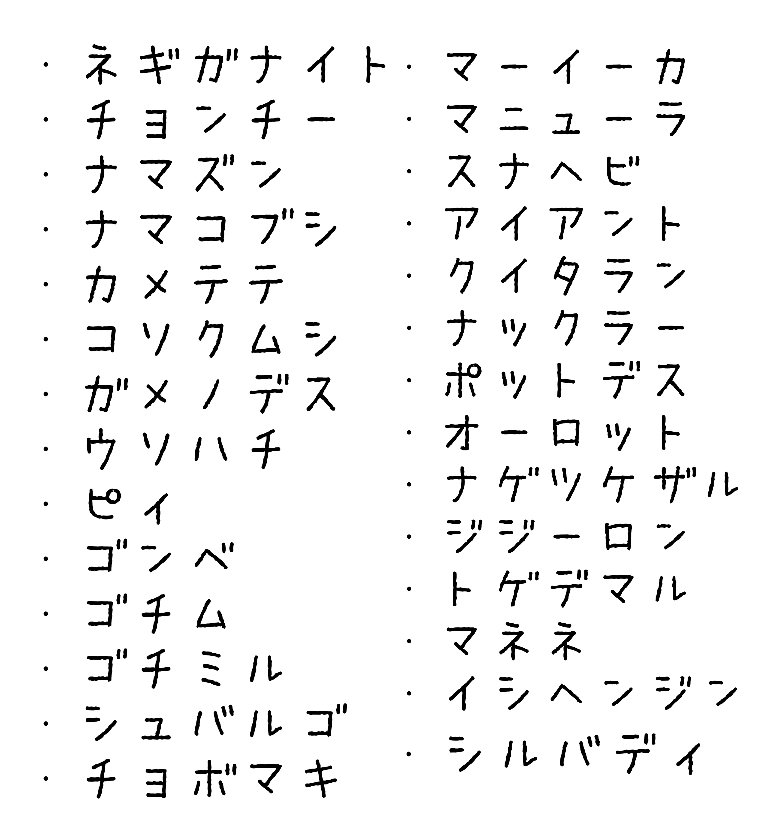 ・ネギガナイト
・チョンチー
・ナマズン
・ナマコブシ
・カメテテ
・コソクムシ
・ガメノデス
・ウソハチ
・ピィ
・ゴンベ
・ゴチム
・ゴチミル
・シュバルゴ
・チョボマキ
・マーイーカ
・マニューラ
・スナヘビ
・アイアント
・クイタラン
・ナックラー
・ポットデス
・オーロット
・ナゲツケザル
・ジジーロン
・トゲデマル
・マネネ
・イシヘンジン
・シルバディ